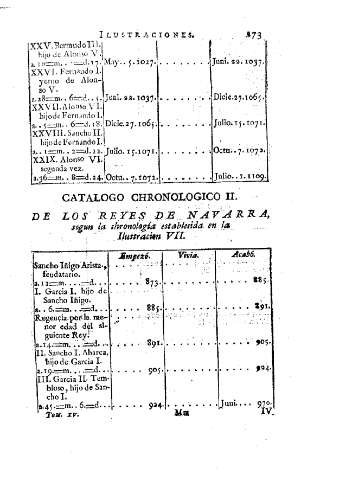 ILUSTRACIONES. 873
XXV. Bermudo III.
hijo de Alonso V.
a. 10=m. .=d.17. May.. 5.1027. Juni. 22.1037.
XXVI. Fernando I.
yerno de Alon-
so V.
a.28=m.. 6=d..5. Juni. 22.1037. Dicie.27.1065.
XXVII. Alonso VI.
hijo de Fernando I.
a..5=m.. 6=d.18. Dicie.27.1065. Julio.15.1071.
XXVIII. Sancho II.
hijo de Fernando I.
a..1=m.. 2=d.22. Julio.15.1071. Octu.. 7.1072.
XXIX. Alonso VI.
segunda vez.
a.36=m.. 8=d.24. Octu.. 7.1072. Julio.. 1.1109.
CATALOGO CHRONOLOGICO II.
DE LOS REYES DE NAVARRA,
segun la chronología establecida en la
Ilustracion VII.
Empezó. Vivia. Acabó.
Sancho Iñigo Arista,
feudatario.
a.12=m...=d. 873. 885.
I. Garcia I. hijo de
Sancho Iñigo.
a..6.=m...=d. 885. 891.
Regencia por la me-
nor edad del si-
guiente Rey.
a.14=m...=d. 891. 905.
II. Sancho I. Abarca,
hijo de Garcia I.
a.19=m...=d. 905. 924.
III. Garcia II. Tem-
bloso, hijo de San-
cho I.
a.45.=m..6=d. 924. Juni. 970.
Tom. XV. Mm IV.